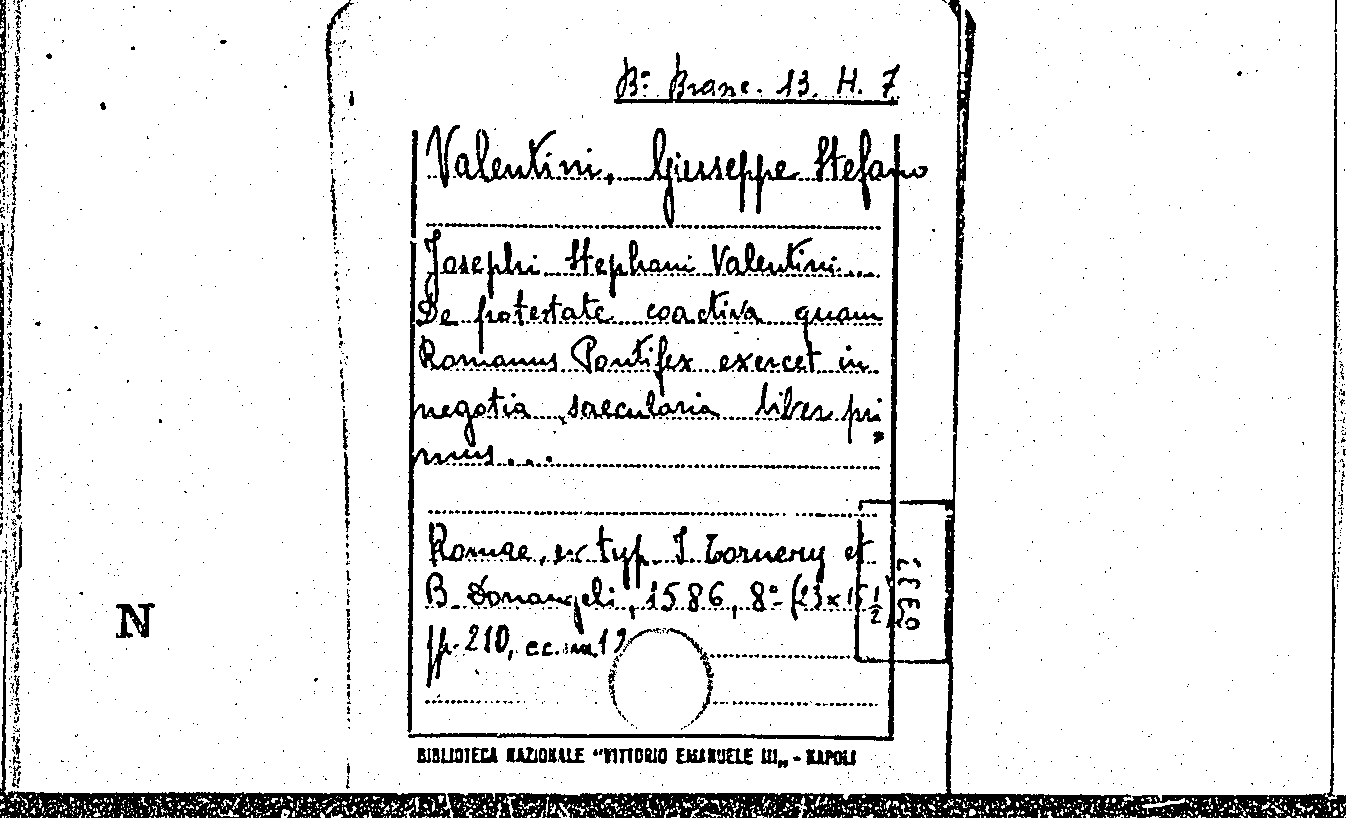 Bª Branc. 13. H. 7
Valentini, Giuseppe Stefano
Josephi Stephani Valentini...
De potestate coactiva quam
Romanus Pontifex exercet in
negotia saecularia liber pri
mus...
Romae, ex typ. J. Tornery et
B. Donangeli, 1586, 8º (23x15 1/2)
pp. 210, cc. nn 12
N
BIBLIOTECA NAZIONALE "VITTORIO EMANUELE III„ - NAPOLI